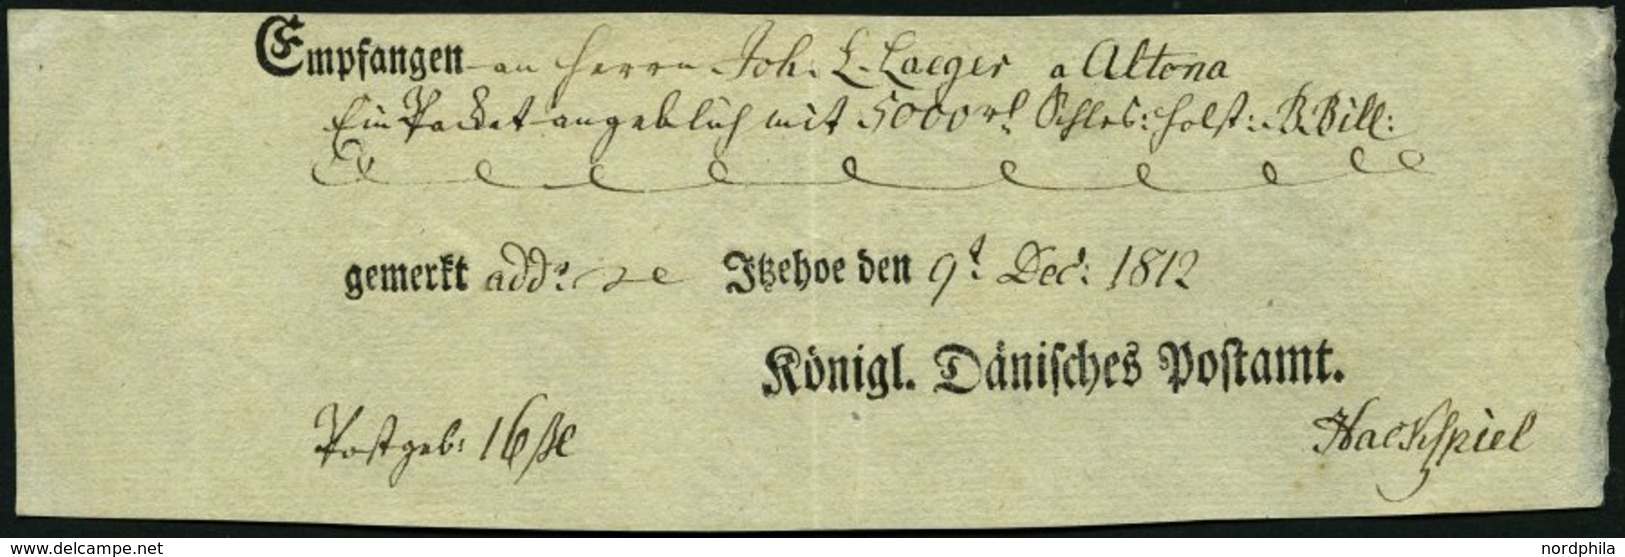 Empfangen an Herrn Joh: L. Laeger a Altona
Ein Packet angeblich mit 5000 rl Schles: Holst: B. Bill:
gemerkt addr: Itzehoe den 9t Dec: 1812
Königl. Dänisches Postamt.
Postgeb: 16 ße Hackspiel
www.delcampe.net nordphila